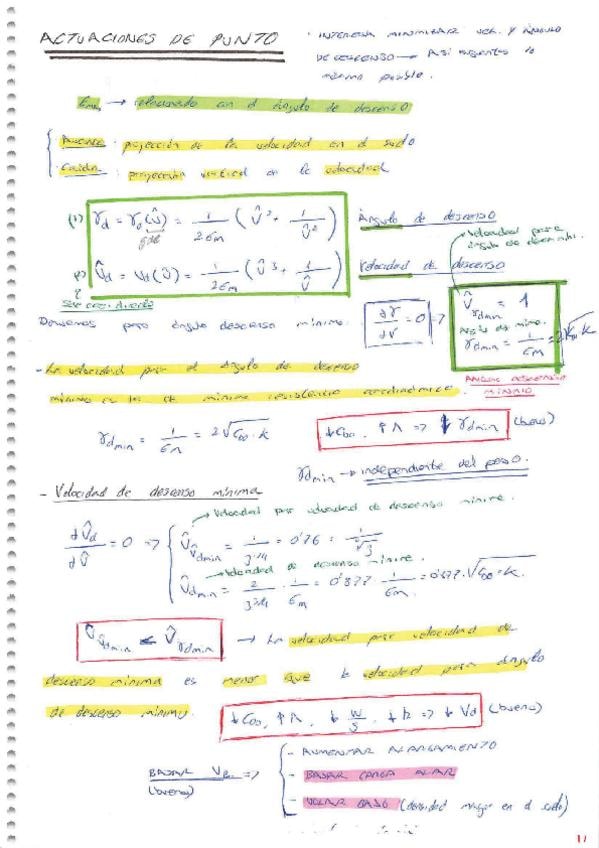 ACTUACIONES DE PUNTO
· INTERESA MINIMIZAR VEL. Y ÁNGULO
DE DESCENSO → Así aguantas lo
máximo posible.
→ relacionado con el ángulo de descenso
Avance: proyección de la velocidad en el suelo
Caída: proyección vertical de la velocidad
(1) γd = γd(V̂) = 1/2Em (V̂² + 1/V̂²)
Ángulo de descenso
V̂d = Vd(V̂) = 1/2Em (V̂³ + 1/V̂)
Velocidad de descenso
→ Velocidad para
ángulo de desc. min.
Derivamos para ángulo descenso mínimo. ∂γ/∂V = 0 =>
V̂γdmin = 1
γdmin = 1/Em = 2√CD0 k
ANGULO DESCENSO
MINIMO
- La velocidad para el ángulo de descenso
mínimo es la de mínima resistencia aerodinámica.
γdmin = 1/Em = 2√CD0·k
↓CD0, ↑Λ => ↓ γdmin (bueno)
γdmin → independiente del peso.
- Velocidad de descenso mínima
→ Velocidad para velocidad de descenso mínima.
dV̂/dV̂ = 0 => V̂Vdmin = 1/3^1/4 = 0'76 = 1/⁴√3
→ Velocidad de descenso mínima.
V̂dmin = 2/3^3/4 · 1/Em = 0'877 · 1/Em = 0'877·√CD0·k.
V̂Vdmin < V̂γdmin → La velocidad para velocidad de
descenso mínima es menor que la velocidad para ángulo
de descenso mínimo
↓CD0, ↑Λ, ↓ W/S, ↓h => ↓Vd (bueno)
BAJAR Vd =>
(bueno)
- AUMENTAR ALARGAMIENTO
- BAJAR CARGA ALAR
- VOLAR BAJO (densidad mayor en el suelo)
17